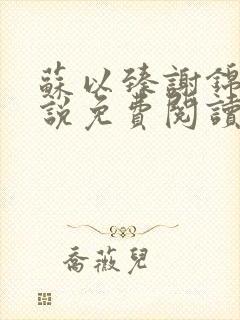 蘇以臻謝錦
說免費閱讀
喬薇兒